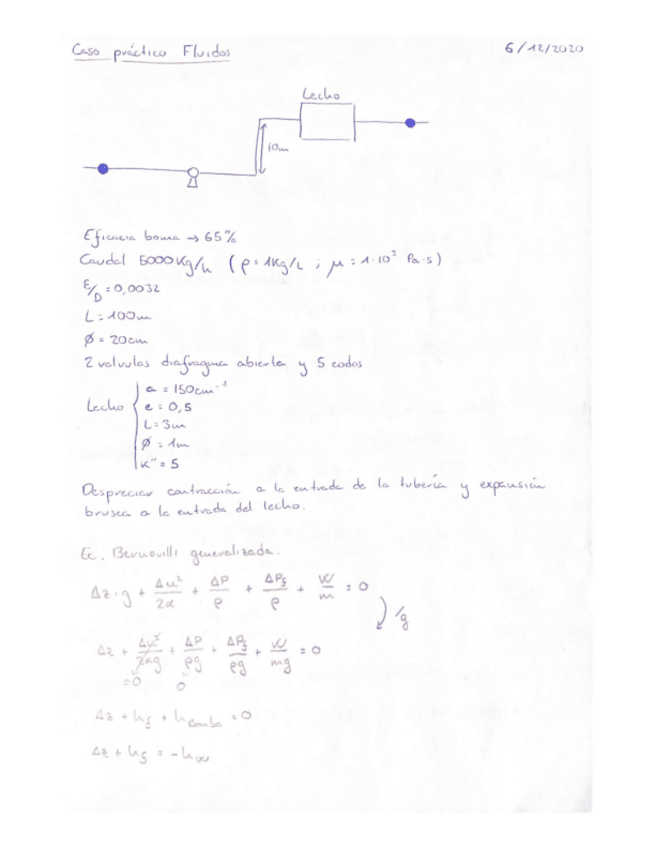 Caso práctico Fluidos 6/12/2020
Lecho
10m
Eficacia bomba → 65%
Caudal 5000 Kg/h (ρ = 1Kg/L ; μ = 1·10³ Pa·s)
ε/D = 0,0032
L = 100m
Ø = 20cm
2 valvulas diafragma abierta y 5 codos
Lecho { a = 150cm⁻¹
e = 0,5
L = 3m
Ø = 1m
K" = 5
Despreciar contracción a la entrada de la tubería y expansión
brusca a la entrada del lecho.
Ec. Bernouilli generalizada.
Δz·g + Δu²/2α + ΔP/ρ + ΔPf/ρ + W/m = 0
/g
Δz + Δu²/2αg + ΔP/ρg + ΔPf/ρg + W/mg = 0
=0 0
Δz + hf + hbomba = 0
Δz + hf = -hw